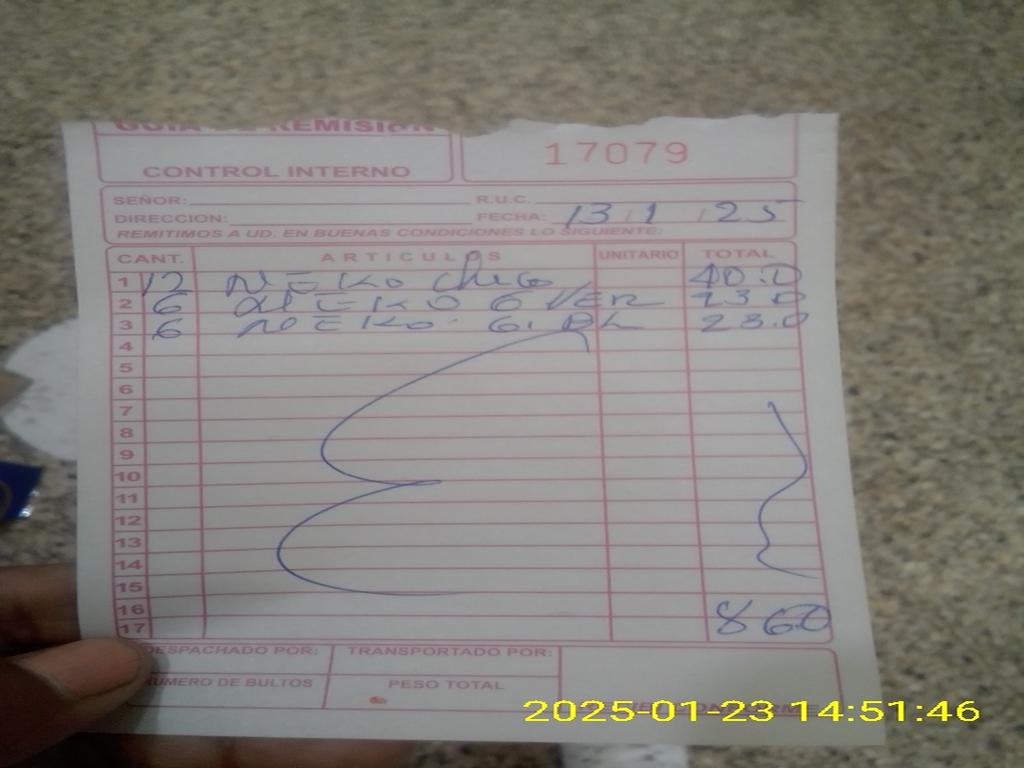 GUIA DE REMISION
CONTROL INTERNO
17079
SEÑOR: R.U.C.
DIRECCION: FECHA: 13 / 1 / 25
REMITIMOS A UD. EN BUENAS CONDICIONES LO SIGUIENTE:
CANT. ARTICULOS UNITARIO TOTAL
1 12 NEKO chico 40.0
2 6 NEKO G VER 23.0
3 6 NEKO G. 23.0
4
5
6
7
8
9
10
11
12
13
14
15
16
17 86.0
DESPACHADO POR: TRANSPORTADO POR:
NUMERO DE BULTOS PESO TOTAL
2025-01-23 14:51:46